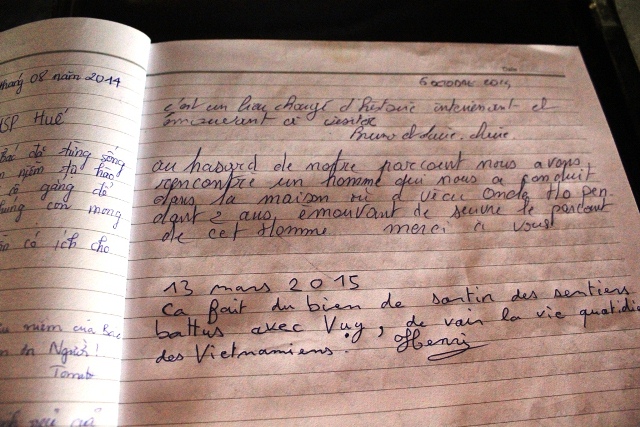 tháng 08 năm 2014
ĐHSP Huế
Bác đã từng sống
niềm tự hào
cố gắng để
con mong
có ích cho
niệm của Bác
ơn Người!
Date
6 octobre 2014
c'est un lieu chargé d'histoire intéressant et
émouvant à visiter
Bruno et Marie
au hasard de notre parcourt nous avons
rencontré un homme qui nous a conduit
dans la maison où a vécu Oncle Ho pen-
dant 2 ans émouvant de suivre le parcourt
de cet Homme merci à vous
13 mars 2015
ca fait du bien de sortir des sentiers
battus avec Vuy, de voir la vie quotidie
des Vietnamiens. Henri